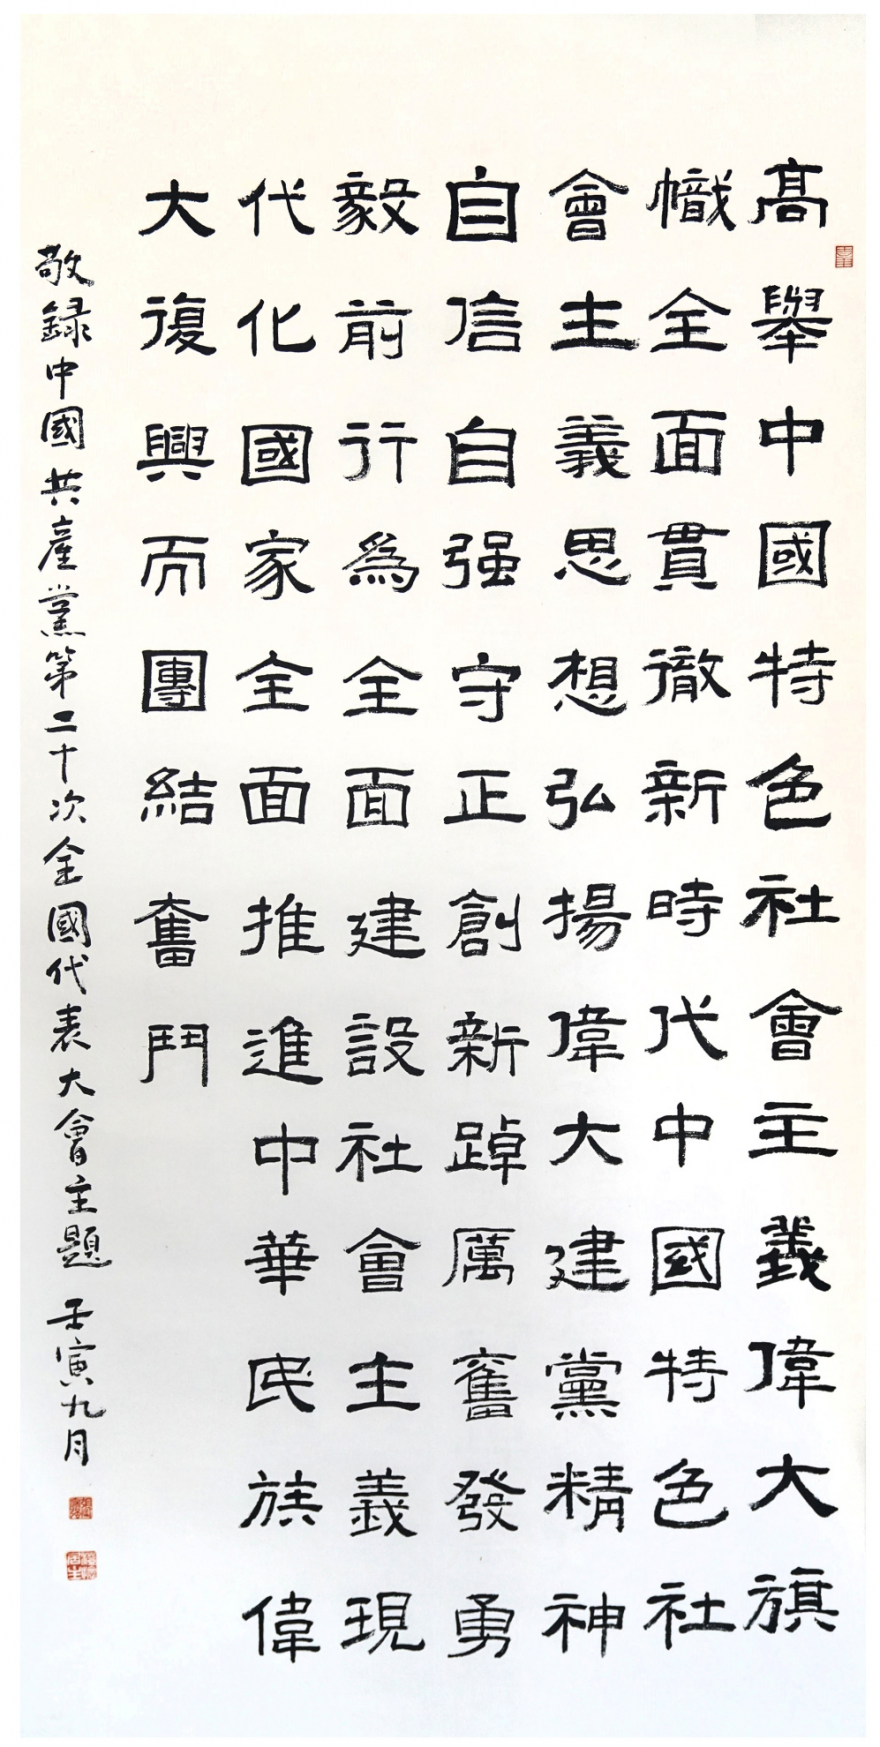 高舉中國特色社會主義偉大旗
幟全面貫徹新時代中國特色社
會主義思想弘揚偉大建黨精神
自信自强守正創新踔厲奮發勇
毅前行爲全面建設社會主義現
代化國家全面推進中華民族偉
大復興而團結奮鬥
敬録中國共產黨第二十次全國代表大會主題 壬寅九月